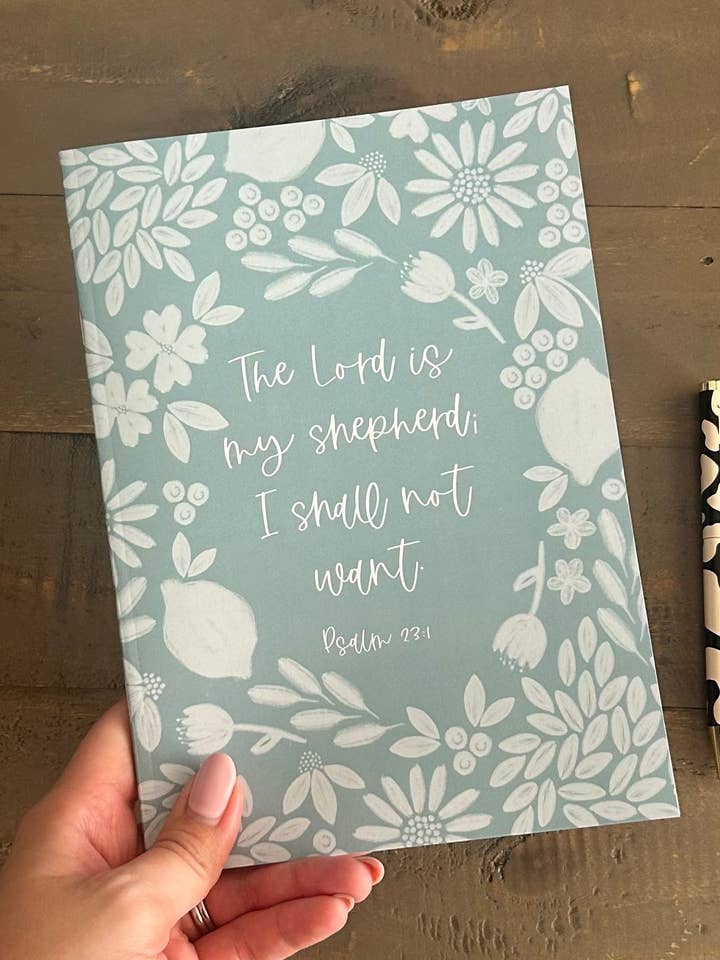 The Lord is
my shepherd;
I shall not
want.
Psalm 23:1